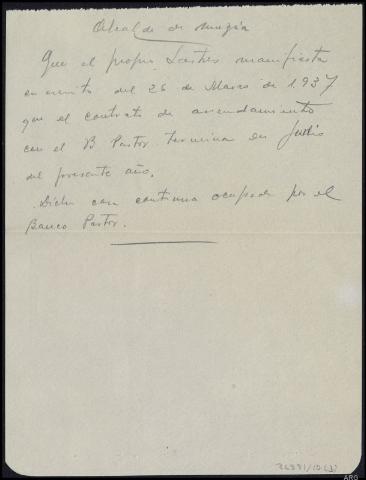 Alcalde de Mugia
Que el propio Lastres manifiesta
en escrito del 26 de Marzo de 1937
que el contrato de arrendamiento
con el B Pastor termina en Julio
del presente año.
Dicha casa continua ocupada por el
Banco Pastor.
ARG